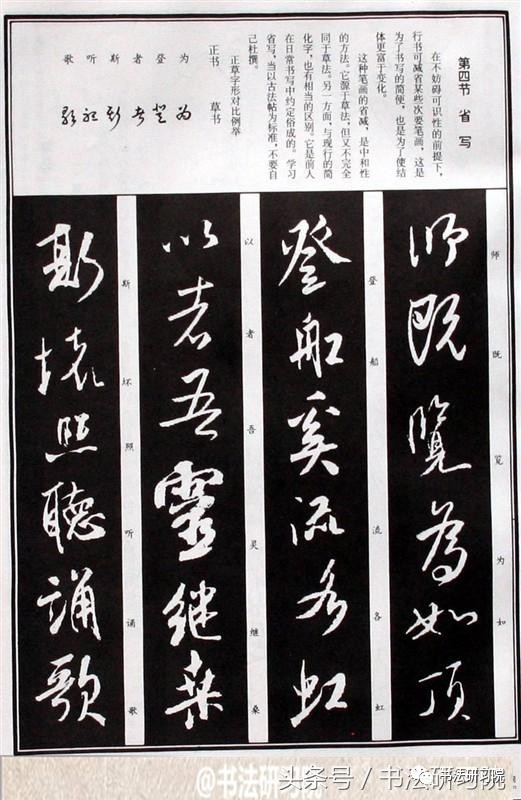 第四节 省写
在不妨碍可识性的前提下，
行书可减省某些次要笔画，这是
为了书写的简便，也是为了使结
体更富于变化。
这种笔画的省减，是中和性
的方法。它源于草法，但又不完全
同于草法。另一方面，与现行的简
化字，也有相当的区别。它是前人
在日常书写中约定俗成的。学习
省写，当以古法帖为标准，不要自
己杜撰。
正草字形对比例举
正书 草书
为 为
登 登
者 者
斯 斯
听 听
歌 歌
师 既 览 为 如
師既覽為如頂
登 船 流 各 虹
登船奚流各虹
以 者 吾 灵 继 桑
以者吾靈繼桑
斯 坏 照 听 诵 歌
斯壞照聽誦歌
@书法研究院
头条号 / 书法研究院